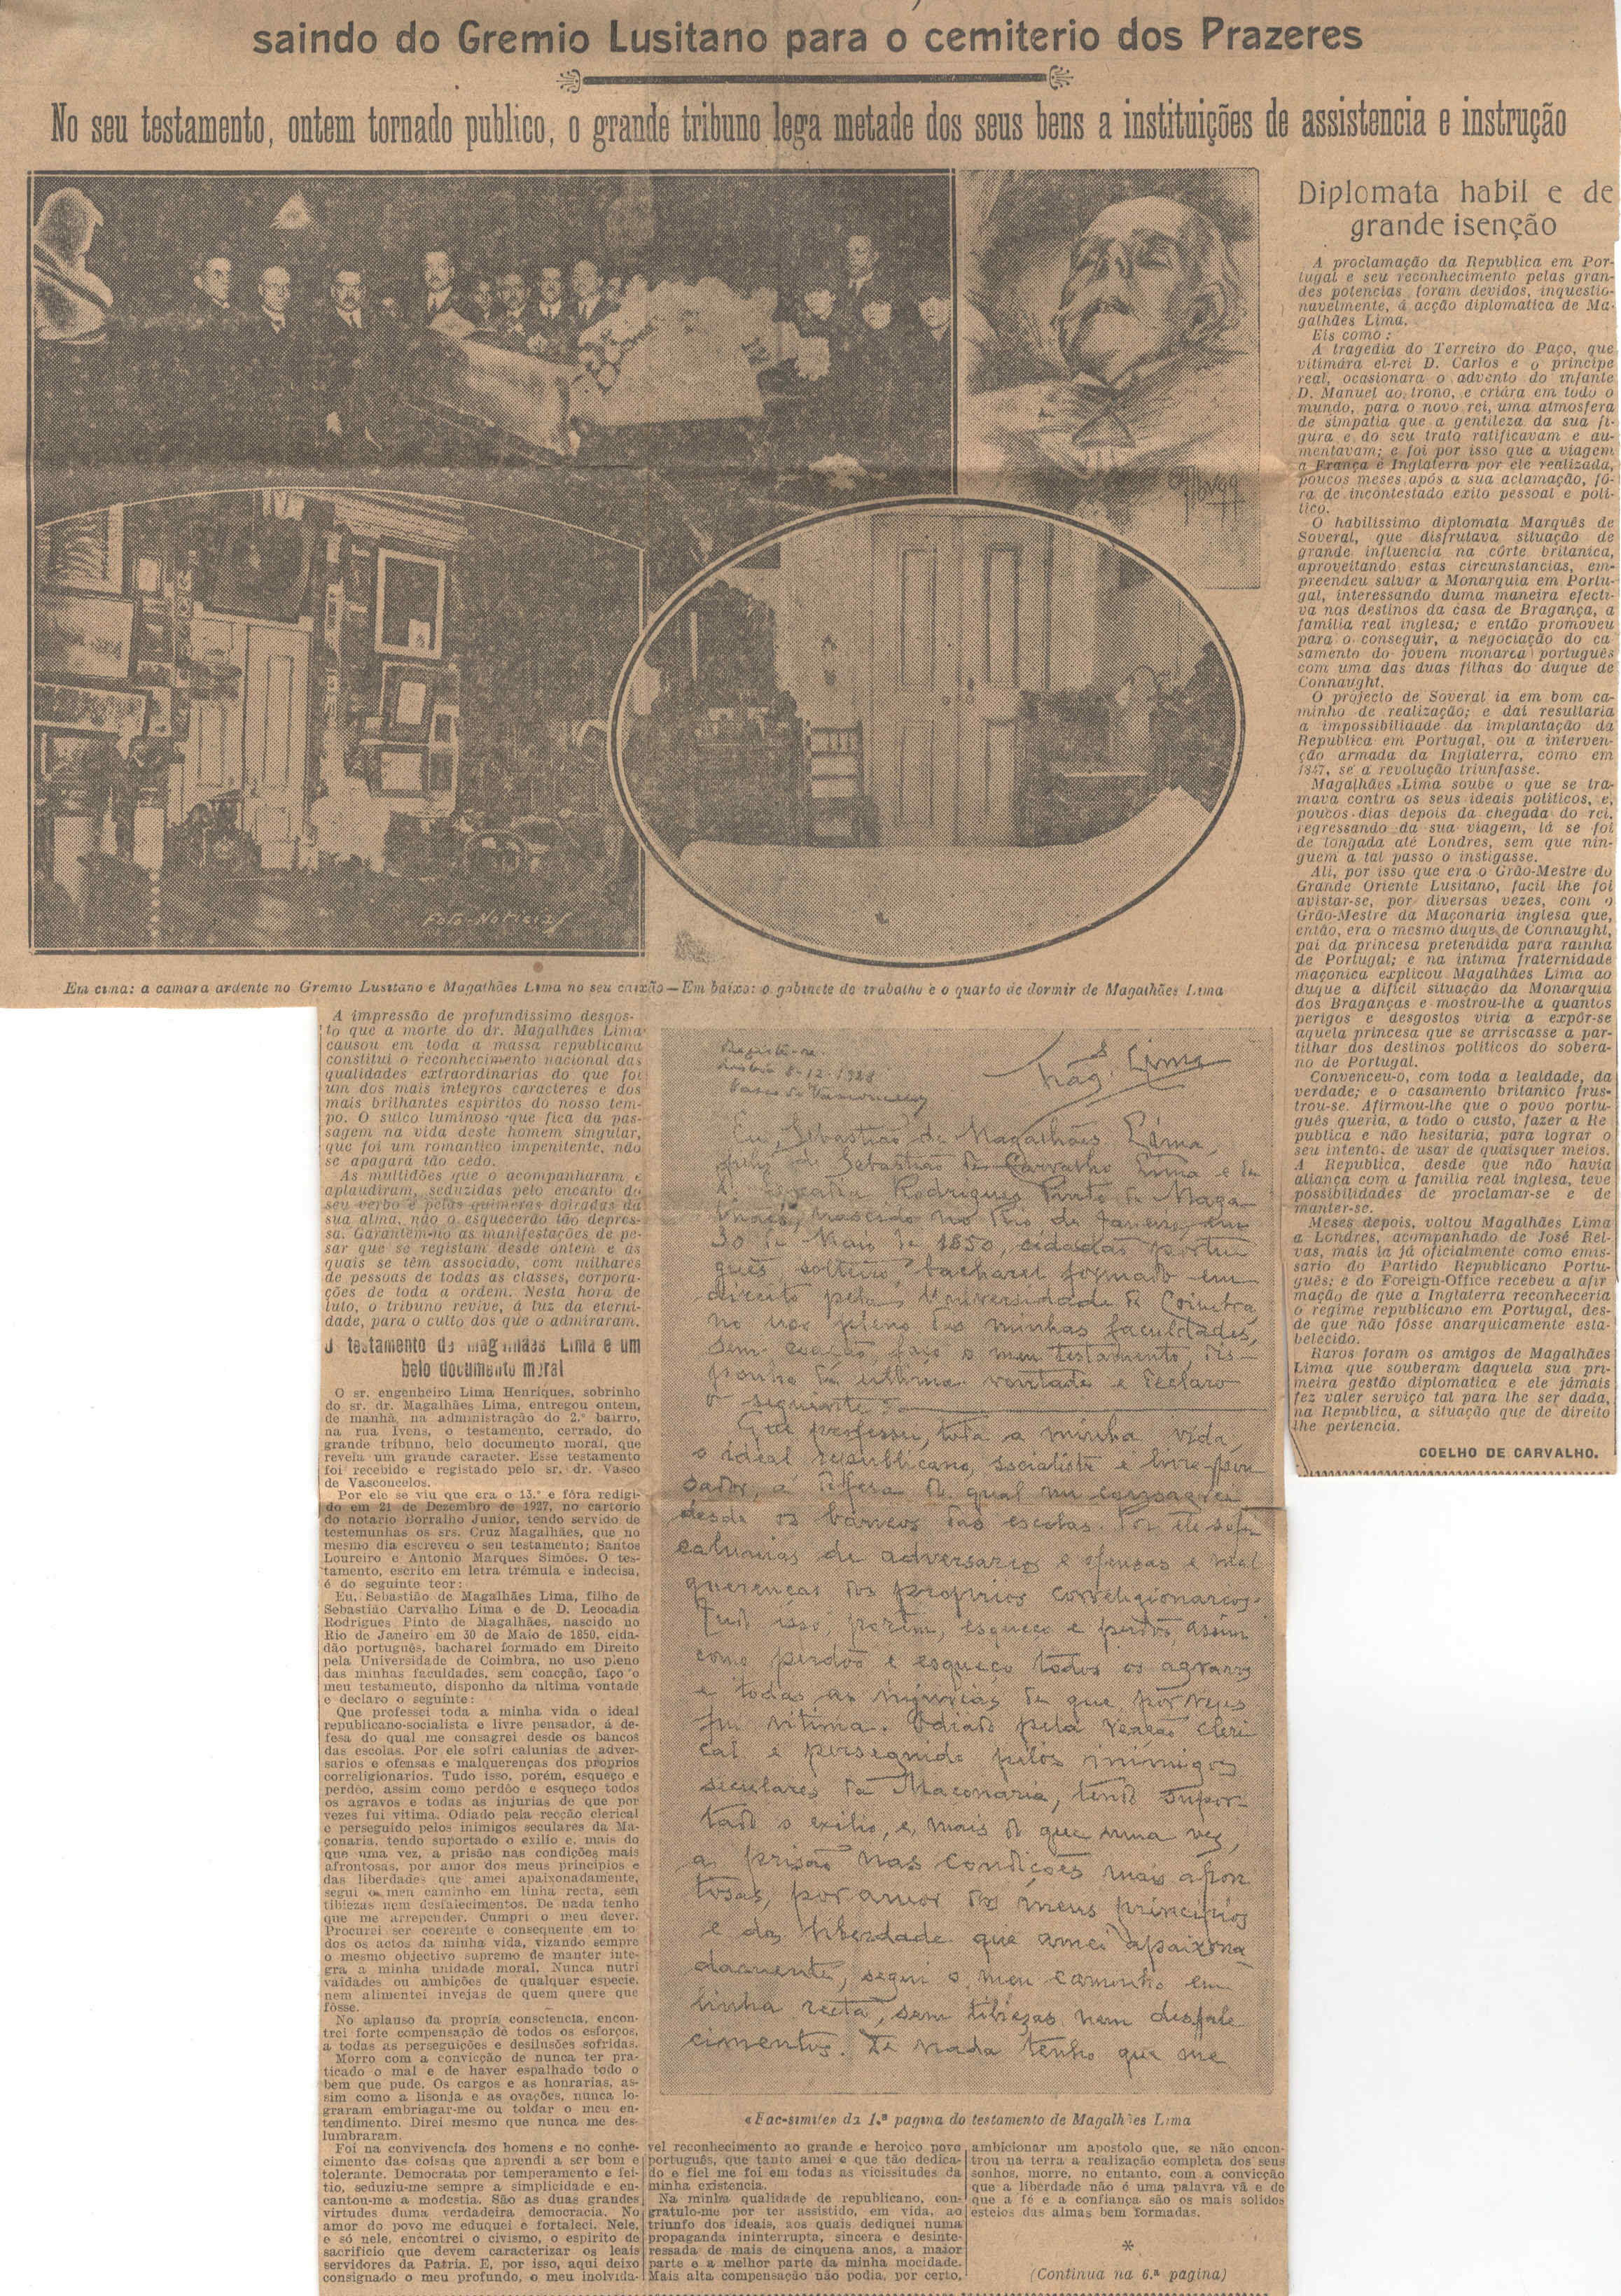 saindo do Gremio Lusitano para o cemiterio dos Prazeres
No seu testamento, ontem tornado publico, o grande tribuno lega metade dos seus bens a instituições de assistencia e instrução
Foto-Noticias
Em cima: a camara ardente no Gremio Lusitano e Magalhães Lima no seu caixão—Em baixo: o gabinete de trabalho e o quarto de dormir de Magalhães Lima
A impressão de profundissimo desgos-
to que a morte do dr. Magalhães Lima
causou em toda a massa republicana
constitui o reconhecimento nacional das
qualidades extraordinarias do que foi
um dos mais integros caracteres e dos
mais brilhantes espiritos do nosso tem-
po. O sulco luminoso que fica da pas-
sagem na vida deste homem singular,
que foi um romantico impenitente, não
se apagará tão cedo.
As multidões que o acompanharam e
aplaudiram, seduzidas pelo encanto do
seu verbo e pelas quimeras doiradas da
sua alma, não o esquecerão tão depres-
sa. Garantem-no as manifestações de pe-
sar que se registam desde ontem e ás
quais se têm associado, com milhares
de pessoas de todas as classes, corpora-
ções de toda a ordem. Nesta hora de
luto, o tribuno revive, á luz da eterni-
dade, para o culto dos que o admiraram.
O testamento de Magalhães Lima é um
belo documento moral
O sr. engenheiro Lima Henriques, sobrinho
do sr. dr. Magalhães Lima, entregou ontem,
de manhã, na administração do 2.º bairro,
na rua Ivens, o testamento, cerrado, do
grande tribuno, belo documento moral, que
revela um grande caracter. Esse testamento
foi recebido e registado pelo sr. dr. Vasco
de Vasconcelos.
Por ele se viu que era o 13.º e fôra redigi-
do em 21 de Dezembro de 1927, no cartorio
do notario Borralho Junior, tendo servido de
testemunhas os srs. Cruz Magalhães, que no
mesmo dia escreveu o seu testamento; Santos
Loureiro e Antonio Marques Simões. O tes-
tamento, escrito em letra trémula e indecisa,
é do seguinte teor:
Eu, Sebastião de Magalhães Lima, filho de
Sebastião Carvalho Lima e de D. Leocadia
Rodrigues Pinto de Magalhães, nascido no
Rio de Janeiro em 30 de Maio de 1850, cida-
dão português, bacharel formado em Direito
pela Universidade de Coimbra, no uso pleno
das minhas faculdades, sem coacção, faço o
meu testamento, disponho da ultima vontade
e declaro o seguinte:
Que professei toda a minha vida o ideal
republicano-socialista e livre pensador, á de-
fesa do qual me consagrei desde os bancos
das escolas. Por ele sofri calunias de adver-
sarios e ofensas e malquerenças dos proprios
correligionarios. Tudo isso, porém, esqueço e
perdôo, assim como perdôo e esqueço todos
os agravos e todas as injurias de que por
vezes fui vitima. Odiado pela recção clerical
e perseguido pelos inimigos seculares da Ma-
çonaria, tendo suportado o exilio e, mais do
que uma vez, a prisão nas condições mais
afrontosas, por amor dos meus principios e
das liberdades que amei apaixonadamente,
segui o meu caminho em linha recta, sem
tibiezas nem desfalecimentos. De nada tenho
que me arrepender. Cumpri o meu dever.
Procurei ser coerente e consequente em to-
dos os actos da minha vida, vizando sempre
o mesmo objectivo supremo de manter inte-
gra a minha unidade moral. Nunca nutri
vaidades ou ambições de qualquer especie,
nem alimentei invejas de quem quere que
fôsse.
No aplauso da propria consciencia, encon-
trei forte compensação de todos os esforços,
a todas as perseguições e desilusões sofridas.
Morro com a convicção de nunca ter pra-
ticado o mal e de haver espalhado todo o
bem que pude. Os cargos e as honrarias, as-
sim como a lisonja e as ovações, nunca lo-
graram embriagar-me ou toldar o meu en-
tendimento. Direi mesmo que nunca me des-
lumbraram.
Foi na convivencia dos homens e no conhe-
cimento das coisas que aprendi a ser bom e
tolerante. Democrata por temperamento e fei-
tio, seduziu-me sempre a simplicidade e en-
cantou-me a modestia. São as duas grandes
virtudes duma verdadeira democracia. No
amor do povo me eduquei e fortaleci. Nele,
e só nele, encontrei o civismo, o espirito de
sacrificio que devem caracterizar os leais
servidores da Patria. E, por isso, aqui deixo
consignado o meu profundo, o meu inolvida-
Registe-se.
Lisboa 8-12-1928
Vasco de Vasconcelos
Mag. Lima
Eu, Sebastião de Magalhães Lima,
filho de Sebastião de Carvalho Lima e de
D. Leocadia Rodrigues Pinto de Maga-
lhaes, nascido no Rio de Janeiro, em
30 de Maio de 1850, cidadão portu
guês, solteiro bacharel formado em
direito pela Universidade de Coimbra,
no uso pleno das minhas faculdades,
sem coação, faço o meu testamento, dis-
ponho da ultima vontade e declaro
o seguinte:
Que professei, toda a minha vida,
o ideal republicano, socialista e livre-pen
sador, a defesa do qual me consagrei
desde os bancos das escolas. Por ele sofri
calunias de adversarios e ofensas e mal
querenças dos proprios correligionarios.
Tudo isso, porém, esqueço e perdôo, assim
como perdôo e esqueço todos os agravos
e todas as injurias de que por vezes
fui vitima. Odiado pela reação cleri
cal e perseguido pelos inimigos
seculares da Maçonaria, tendo supor-
tado o exilio, e, mais do que uma vez,
a prisão nas condições mais afron
tosas, por amor dos meus principios
e da liberdade que amei apaixona
damente, segui o meu caminho em
linha recta, sem tibiezas nem desfale
cimentos. De nada tenho que me
«Fac-simile» da 1.ª pagina do testamento de Magalhães Lima
vel reconhecimento ao grande e heroico povo
português, que tanto amei e que tão dedica-
do e fiel me foi em todas as vicissitudes da
minha existencia.
Na minha qualidade de republicano, con-
gratulo-me por ter assistido, em vida, ao
triunfo dos ideais, aos quais dediquei numa
propaganda ininterrupta, sincera e desinte-
ressada de mais de cinquena anos, a maior
parte e a melhor parte da minha mocidade.
Mais alta compensação não podia, por certo,
ambicionar um apostolo que, se não encon-
trou na terra a realização completa dos seus
sonhos, morre, no entanto, com a convicção
que a liberdade não é uma palavra vã e de
que a fé e a confiança são os mais solidos
esteios das almas bem formadas.
*
(Continua na 6.ª pagina)
Diplomata habil e de
grande isenção
A proclamação da Republica em Por-
tugal e seu reconhecimento pelas gran-
des potencias foram devidos, inquestio-
navelmente, á acção diplomatica de Ma-
galhães Lima.
Eis como:
A tragedia do Terreiro do Paço, que
vitimára el-rei D. Carlos e o principe
real, ocasionara o advento do infante
D. Manuel ao trono, e criára em todo o
mundo, para o novo rei, uma atmosfera
de simpatia que a gentileza da sua fi-
gura e do seu trato ratificavam e au-
mentavam; e foi por isso que a viagem
a França e Inglaterra por ele realizada,
poucos meses após a sua aclamação, fô-
ra de incontestado exito pessoal e poli-
tico.
O habilissimo diplomata Marquês de
Soveral, que disfrutava situação de
grande influencia na côrte britanica,
aproveitando estas circunstancias, em-
preendeu salvar a Monarquia em Portu-
gal, interessando duma maneira efecti-
va nos destinos da casa de Bragança, a
familia real inglesa; e então promoveu
para o conseguir, a negociação do ca
samento do jovem monarca português
com uma das duas filhas do duque de
Connaught.
O projecto de Soveral ia em bom ca-
minho de realização; e daí resultaria
a impossibilidade da implantação da
Republica em Portugal, ou a interven-
ção armada da Inglaterra, como em
1847, se a revolução triunfasse.
Magalhães Lima soube o que se tra-
mava contra os seus ideais politicos, e,
poucos dias depois da chegada do rei,
regressando da sua viagem, lá se foi
de longada até Londres, sem que nin-
guem a tal passo o instigasse.
Ali, por isso que era o Grão-Mestre do
Grande Oriente Lusitano, facil lhe foi
avistar-se, por diversas vezes, com o
Grão-Mestre da Maçonaria inglesa que,
então, era o mesmo duque de Connaught,
pai da princesa pretendida para rainha
de Portugal; e na intima fraternidade
maçonica explicou Magalhães Lima ao
duque a dificil situação da Monarquia
dos Braganças e mostrou-lhe a quantos
perigos e desgostos viria a expôr-se
aquela princesa que se arriscasse a par-
tilhar dos destinos politicos do sobera-
no de Portugal.
Convenceu-o, com toda a lealdade, da
verdade; e o casamento britanico frus-
trou-se. Afirmou-lhe que o povo portu-
guês queria, a todo o custo, fazer a Re
publica e não hesitaria, para lograr o
seu intento, de usar de quaisquer meios.
A Republica, desde que não havia
aliança com a familia real inglesa, teve
possibilidades de proclamar-se e de
manter-se.
Meses depois, voltou Magalhães Lima
a Londres, acompanhado de José Rel-
vas, mais ia já oficialmente como emis-
sario do Partido Republicano Portu-
guês; e do Foreign-Office recebeu a afir
mação de que a Inglaterra reconheceria
o regime republicano em Portugal, des-
de que não fôsse anarquicamente esta-
belecido.
Raros foram os amigos de Magalhães
Lima que souberam daquela sua pri-
meira gestão diplomatica e ele jámais
fez valer serviço tal para lhe ser dada,
na Republica, a situação que de direito
lhe pertencia.
COELHO DE CARVALHO.